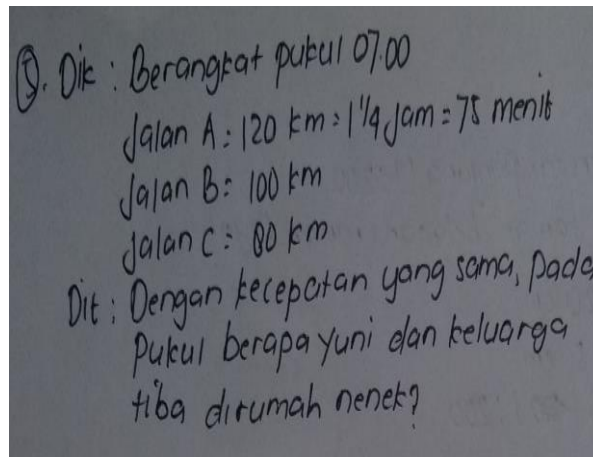 5. Dik : Berangkat pukul 07.00
Jalan A : 120 km = 1 1/4 jam = 75 menit
Jalan B : 100 km
Jalan C : 80 km
Dit : Dengan kecepatan yang sama, pada
pukul berapa yuni dan keluarga
tiba dirumah nenek?